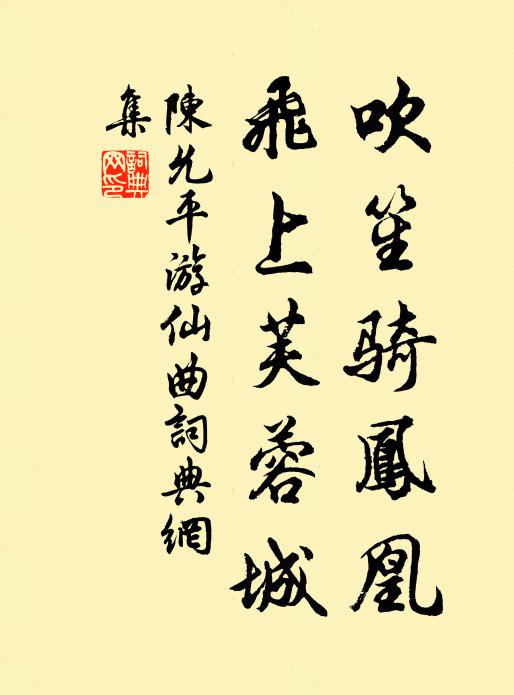 吹笙骑鳳凰
飛上芙蓉城
陳允平游仙曲詞典網
集
詞典
网印